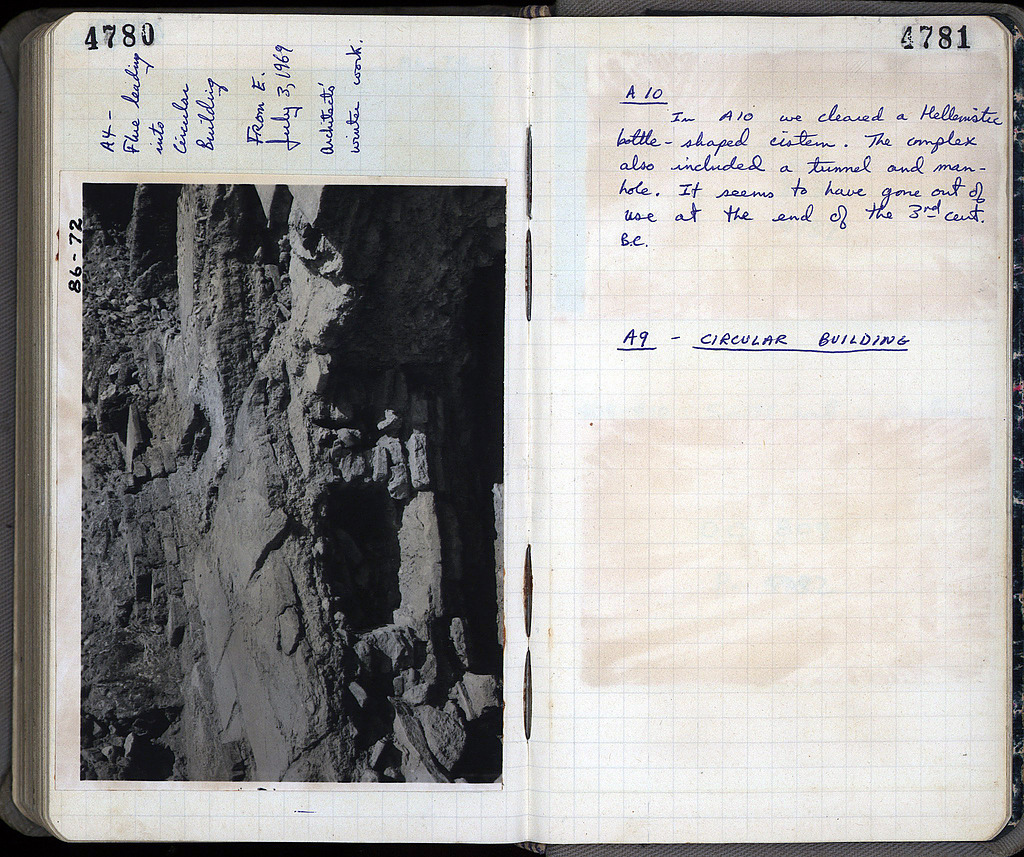 4780
A4 -
Flue leading
into
Circular
Building
From E.
July 3, 1969
Architects'
winter work.
86-72
4781
A 10
In A10 we cleared a Hellenistic
bottle-shaped cistern. The complex
also included a tunnel and man-
hole. It seems to have gone out of
use at the end of the 3rd cent.
B.C.
A9 - CIRCULAR BUILDING